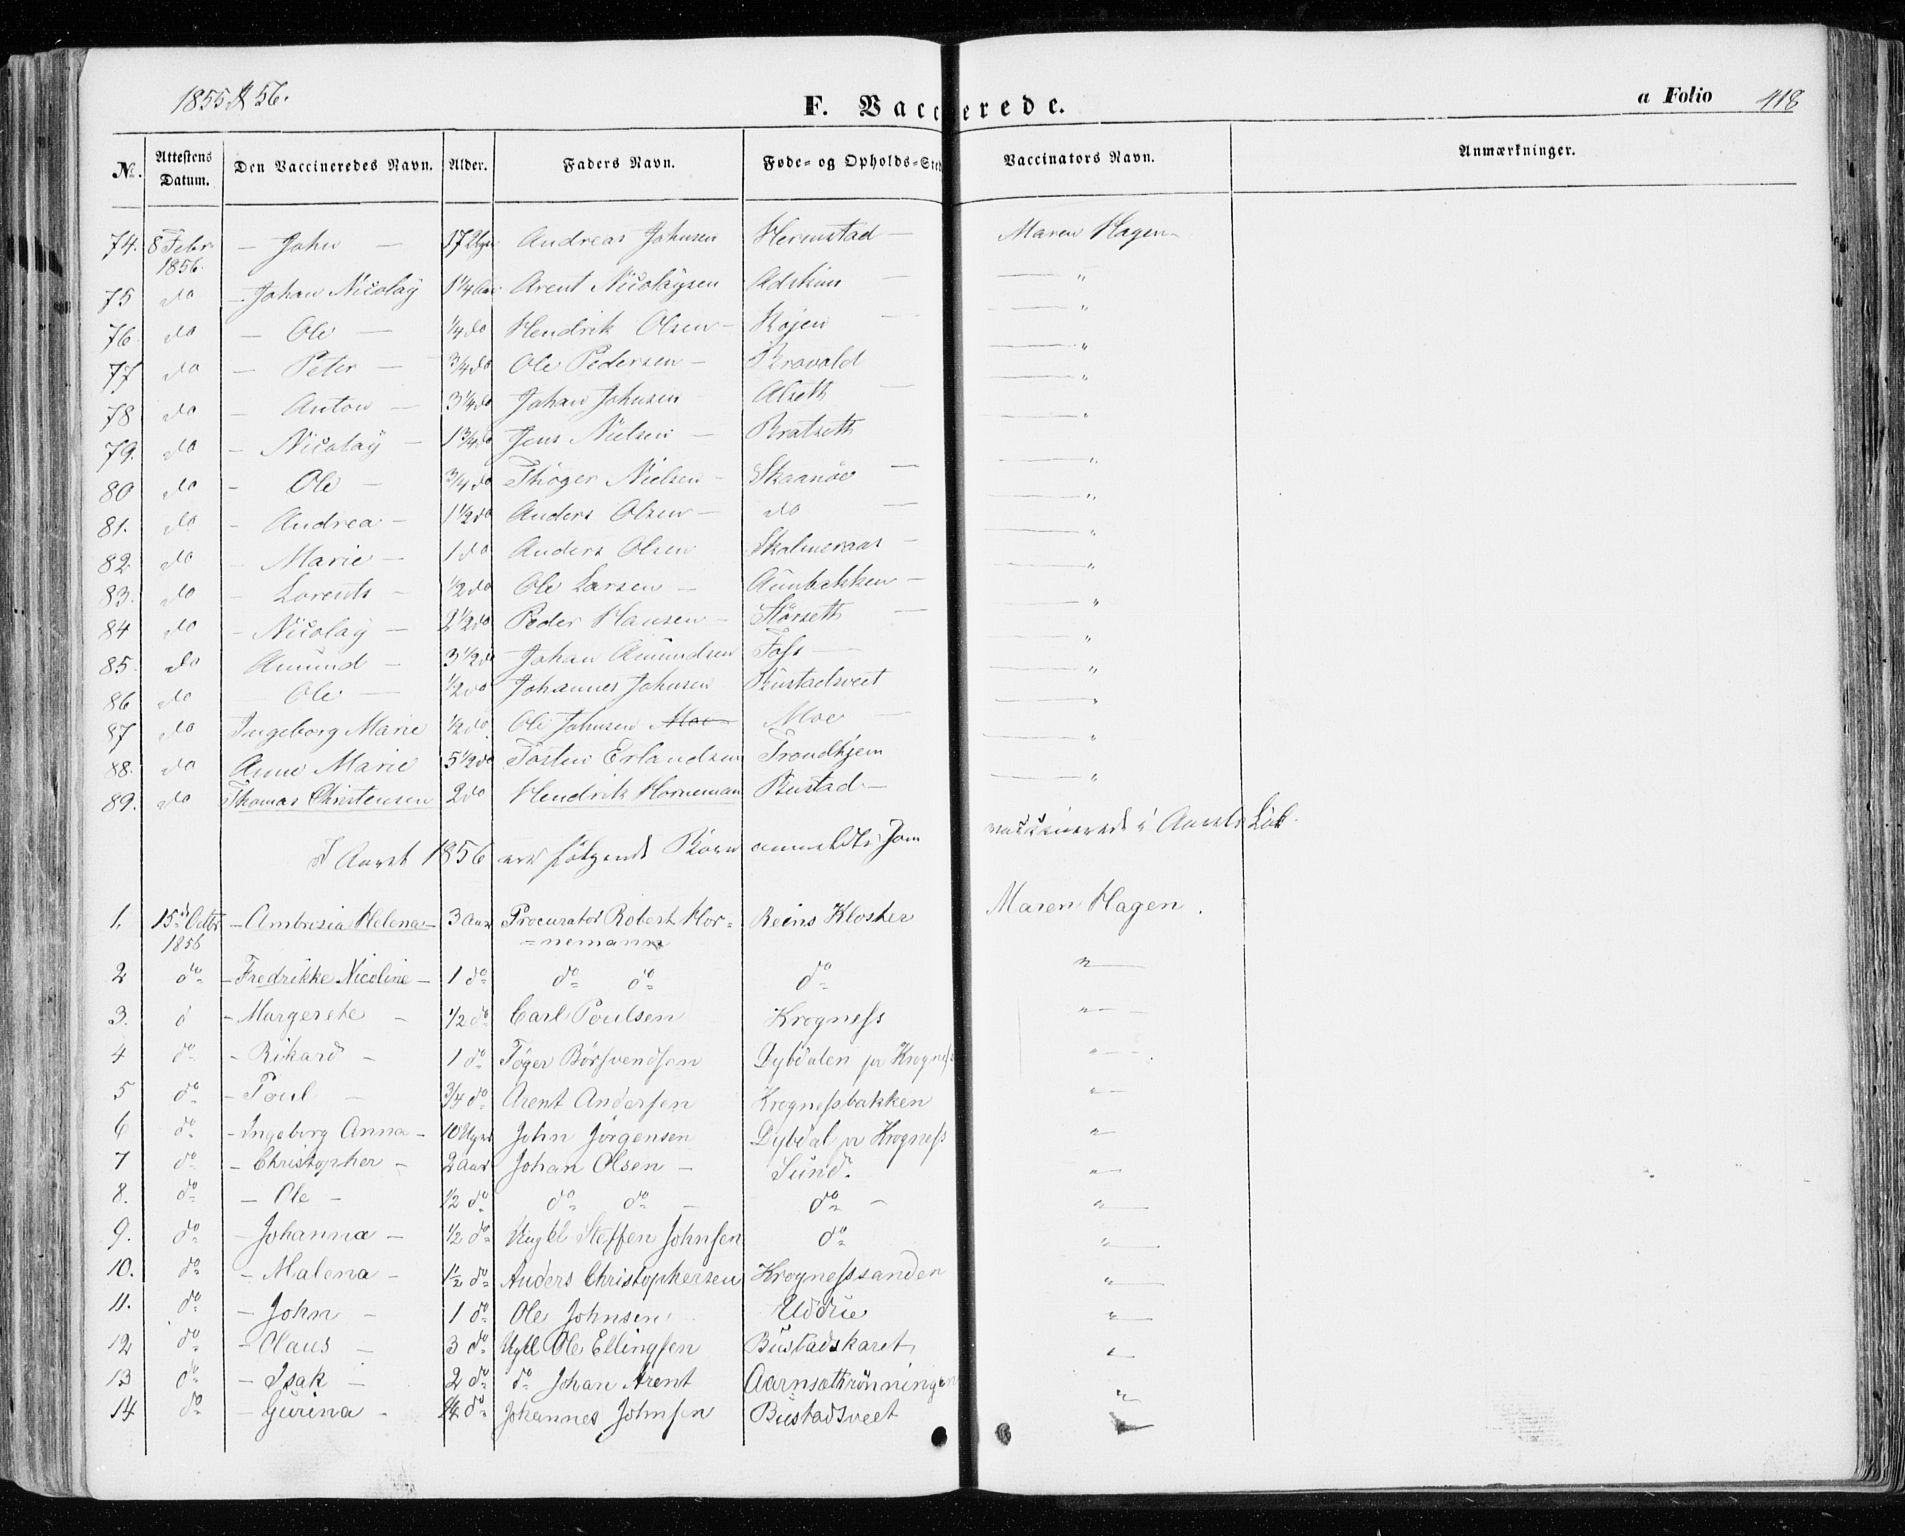 1855 & 56.
F. Vaccinerede.
a Folio 418
No. Attestens Datum. Den Vaccineredes Navn. Alder. Faders Navn. Føde- og Opholds-Sted Vaccinators Navn. Anmærkninger.
74. 8 Febr 1856. – John – 17 Uger Andreas Johnsen Hermstad – Maren Hagen –
75 do – Johan Nicolaÿ 1 1/4 Aar Arent Nicolaÿsen – "
76. do – Ole – 1/4 do Hendrik Olsen – Højen – "
77 do – Peter – 3/4 do Ole Pedersen – – "
78 do – Anton – 3 1/4 do Johan Johnsen Alseth – "
79. do – Nicolaÿ – 1 3/4 do Jens Nielsen – Bratseth – "
80 do – Ole – 3/4 do Thöger Nielsen – Skaanöe – "
81. do – Andrea – 1 1/2 do Anders Olsen – do – "
82. do – Marie – 1 do Anders Olsen Skalmeraas – "
83. do – Lorents – 1/2 do Ole Larsen – Aunbakken – "
84 do – Nicolaÿ – 2 1/2 do Peder Hansen – Störseth – "
85. do Amund – 3 1/2 do Johan Amundsen Foss – "
86 do – Ole – 1/2 do Johannes Johnsen Bustadsveet "
87 do Ingeborg Marie 1/2 do. Ole Johnsen Moe Moe – "
88. do Anne Marie 5 1/2 do Tosten Erlandsen Trondhjem "
89. do Thomas Christensen 2 do Hendrik Horneman Bustad – "
I Aaret 1856 ere følgende Børn anmeldte som vaccinerede i Aarets Løb.
1. 15de Octbr 1856 – Ambrosia Helena – 3 Aar Procurator Robert Hor= Reins Kloster Maren Hagen.
=nemann
2 do – Fredrikke Nicoline – 1 do do do do "
3. d – Margerete – 1/2 do Carl Poulsen Krogness "
4 do – Rikard – 1 do Töger Börsvendsen Dybdalen pr Krogness "
5 do – Poul – 3/4 do Arent Andersen Krognessbakken "
6 do – Ingeborg Anna – 10 Uger John Jörgensen Dybdal pr Krogness "
7 do – Christopher – 2 Aar Johan Olsen – Sund. "
8. do – Ole – 1/2 do do do – do – "
9. do – Johanna – 1/2 do Steffen Johnsen do "
10. do – Malena – 1 1/2 do Anders Christophersen Krognesssanden "
11. do – John – 1 do Ole Johnsen Uddue "
12 do – Olaus – 3 do Ole Ellingsen Bustadskaret "
13 do – Isak – 2 do do Johan Arent Aarnsætrönningen "
14 do – Gurina – do Johannes Johnsen Bustadsveet "